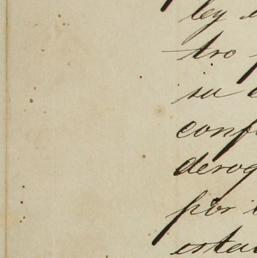 ley
tro
su
conf
derog
por
esta